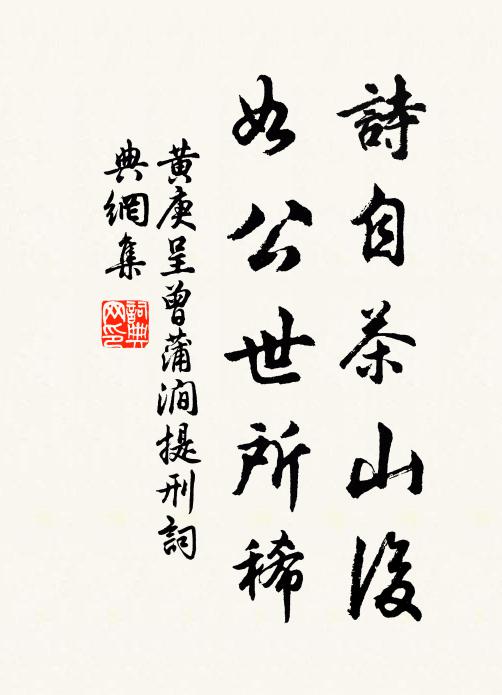 詩自茶山後
如公世所稀
黃庚呈曾蒲澗提刑詞
典網集
詞典网印